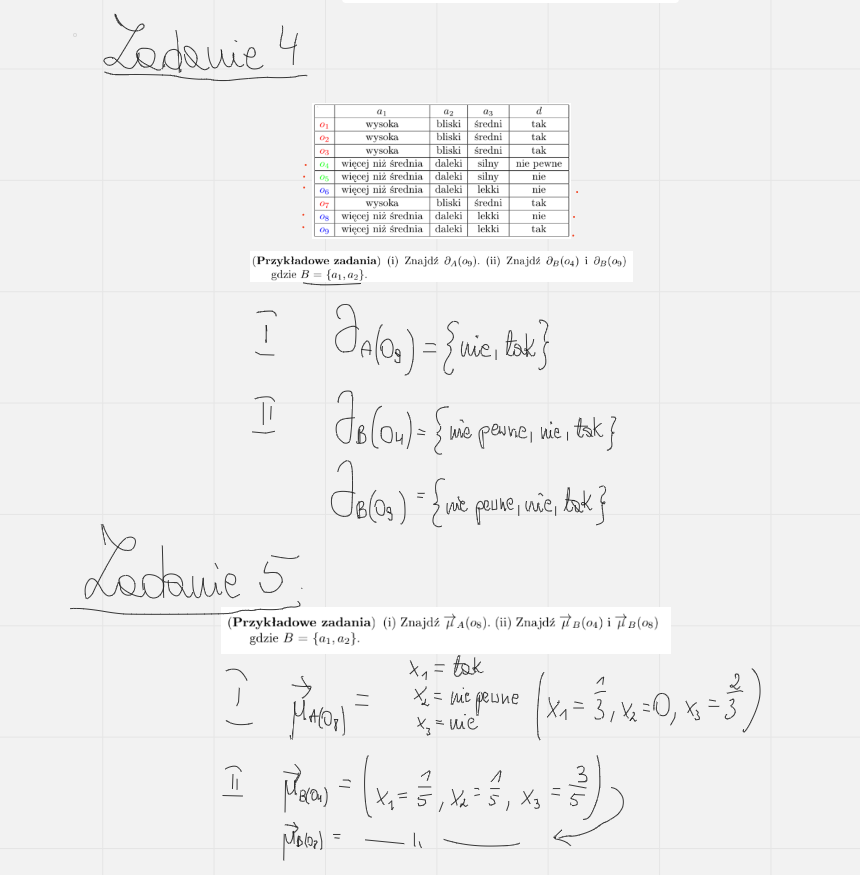 Zadanie 4
a₁ a₂ a₃ d
o₁ wysoka bliski średni tak
o₂ wysoka bliski średni tak
o₃ wysoka bliski średni tak
o₄ więcej niż średnia daleki silny nie pewne
o₅ więcej niż średnia daleki silny nie
o₆ więcej niż średnia daleki lekki nie
o₇ wysoka bliski średni tak
o₈ więcej niż średnia daleki lekki nie
o₉ więcej niż średnia daleki lekki tak
(Przykładowe zadania) (i) Znajdź ∂_A(o₉). (ii) Znajdź ∂_B(o₄) i ∂_B(o₉)
gdzie B = {a₁, a₂}.
I ∂_A(o₉) = {nie, tak}
II ∂_B(o₄) = {nie pewne, nie, tak}
∂_B(o₉) = {nie pewne, nie, tak}
Zadanie 5
(Przykładowe zadania) (i) Znajdź μ⃗_A(o₈). (ii) Znajdź μ⃗_B(o₄) i μ⃗_B(o₈)
gdzie B = {a₁, a₂}.
x₁ = tak
x₂ = nie pewne
x₃ = nie
I μ⃗_A(o₈) = (x₁ = 1/3, x₂ = 0, x₃ = 2/3)
II μ⃗_B(o₄) = (x₁ = 1/5, x₂ = 1/5, x₃ = 3/5)
μ⃗_B(o₈) = — 11 —